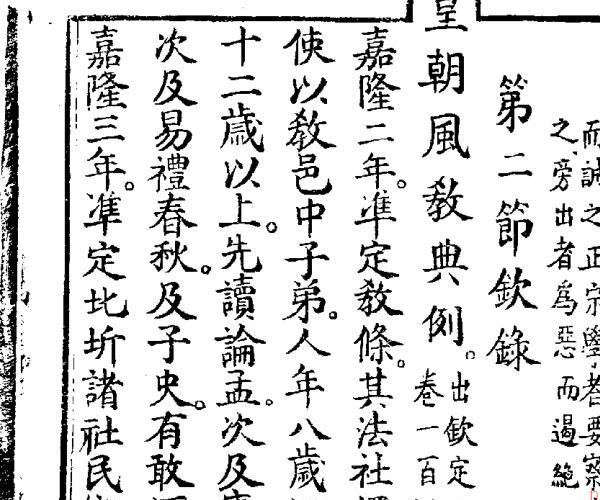 而誠之正宗學者要察
之旁出者爲惡而遏絶
第二節欽錄
皇朝風教典例。出欽定
卷一百
嘉隆二年。準定教條。其法社
使以教邑中子弟。人年八歲
十二歲以上。先讀論孟。次及
次及易禮春秋。及子史。有敢
嘉隆三年。準定北圻諸社民